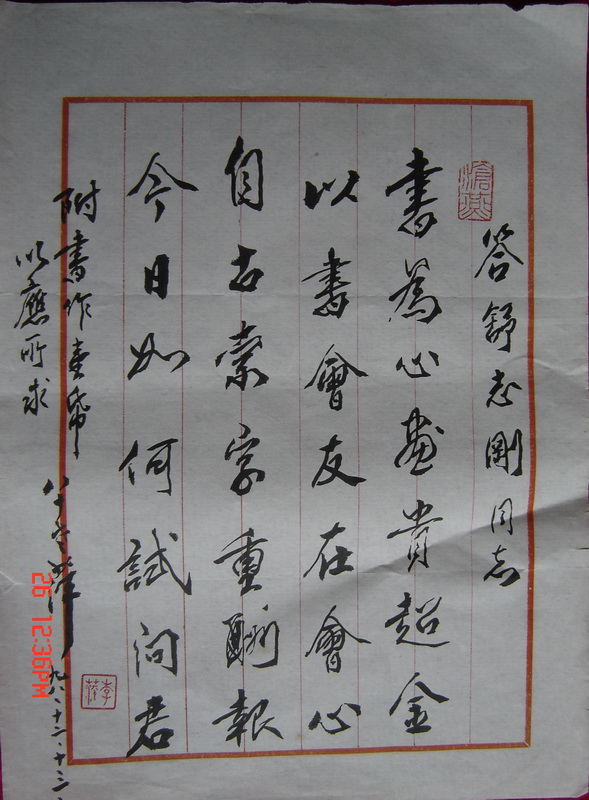 答舒志剛同志
書為心畫貴超金
以書會友在會心
自古索字重酬報
今日如何試問君
附書作壹幀
以應所求
九八、十二、十三、
滄燕
李
26 12:36PM